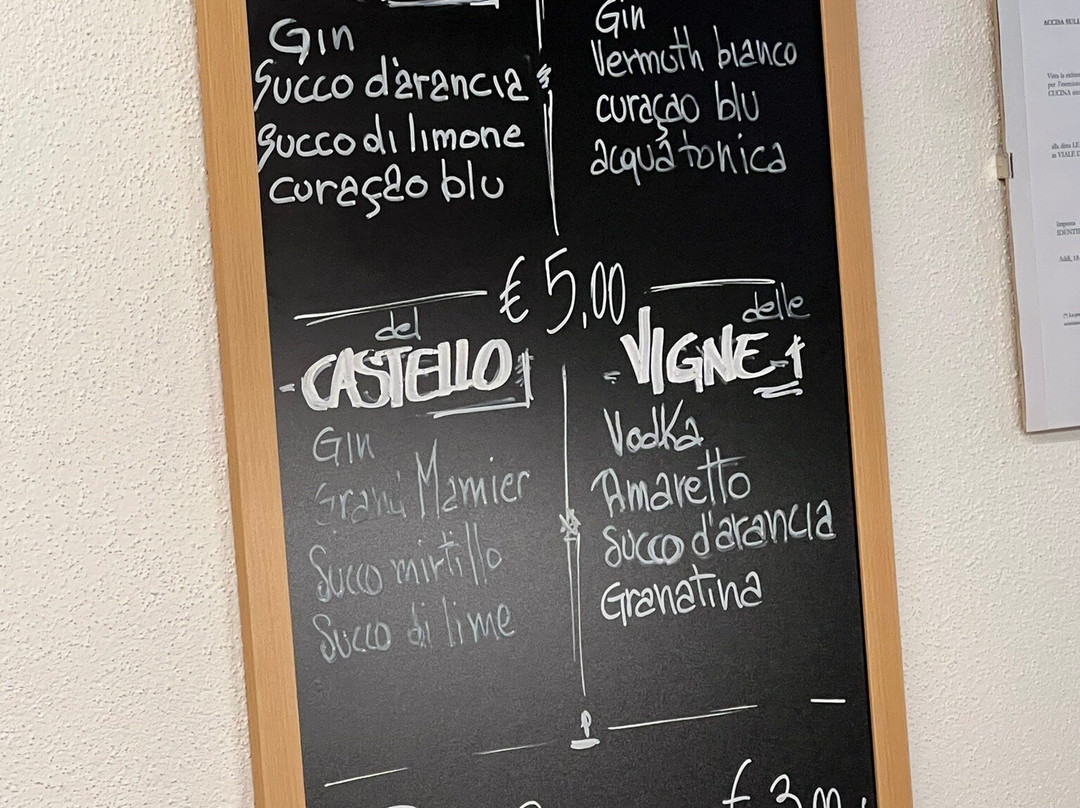 Gin
Succo d'arancia
Succo di limone
curaçao blu
Gin
Vermoth bianco
curaçao blu
acqua tonica
€ 5,00
del
- CASTELLO
Gin
Mamier
Succo mirtillo
Succo di lime
delle
- VIGNE -
Vodka
Amaretto
Succo d'arancia
Granatina
ACCISA SULL
per l'esercizio
CUCINA
alla ditta LE
in VIALE D
Imposta
IDENTI
Addì, 18